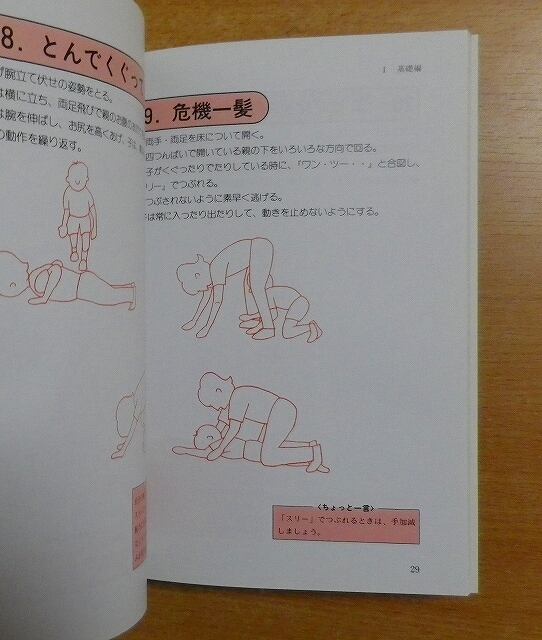 8. とんでくぐっ
腕立て伏せの姿勢をとる。
は横に立ち、両足飛びで親の
は腕を伸ばし、お尻を高くあげ、
の動作を繰り返す。
I 基礎編
9. 危機一髪
両手・両足を床について開く。
四つんばいで開いている親の下をいろいろな方向で回る。
子がくぐったりでたりしている時に、「ワン・ツー・・」と合図し、
リー」でつぶれる。
つぶされないように素早く逃げる。
は常に入ったり出たりして、動きを止めないようにする。
〈ちょっと一言〉
「スリー」でつぶれるときは、手加減
しましょう。
29